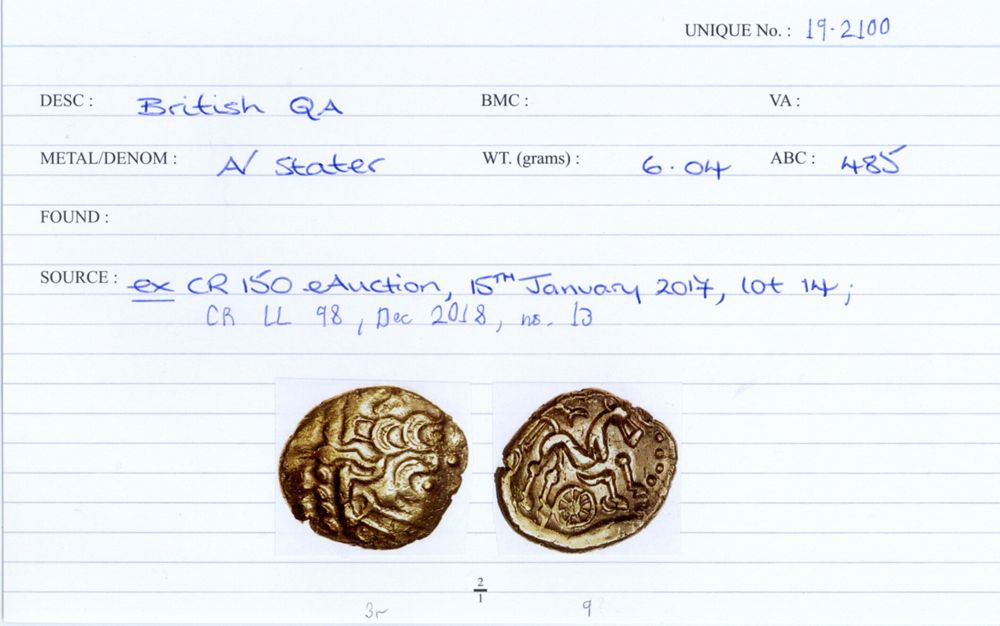 UNIQUE No. : 19-2100
DESC : British QA BMC : VA :
METAL/DENOM : A/ Stater WT. (grams) : 6.04 ABC : 485
FOUND :
SOURCE : ex CR 150 eAuction, 15TH January 2017, lot 14;
CR LL 98, Dec 2018, no. 13
2
1
9